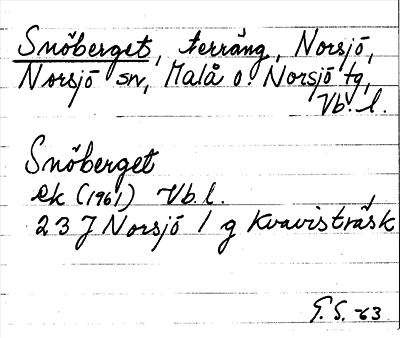 Snöberget, terräng, Norsjö,
Norsjö sn, Malå o. Norsjö tg,
Vb. l.
Snöberget
ek (1961) Vb. l.
23 J Norsjö / g Kvavisträsk
G. S. -63